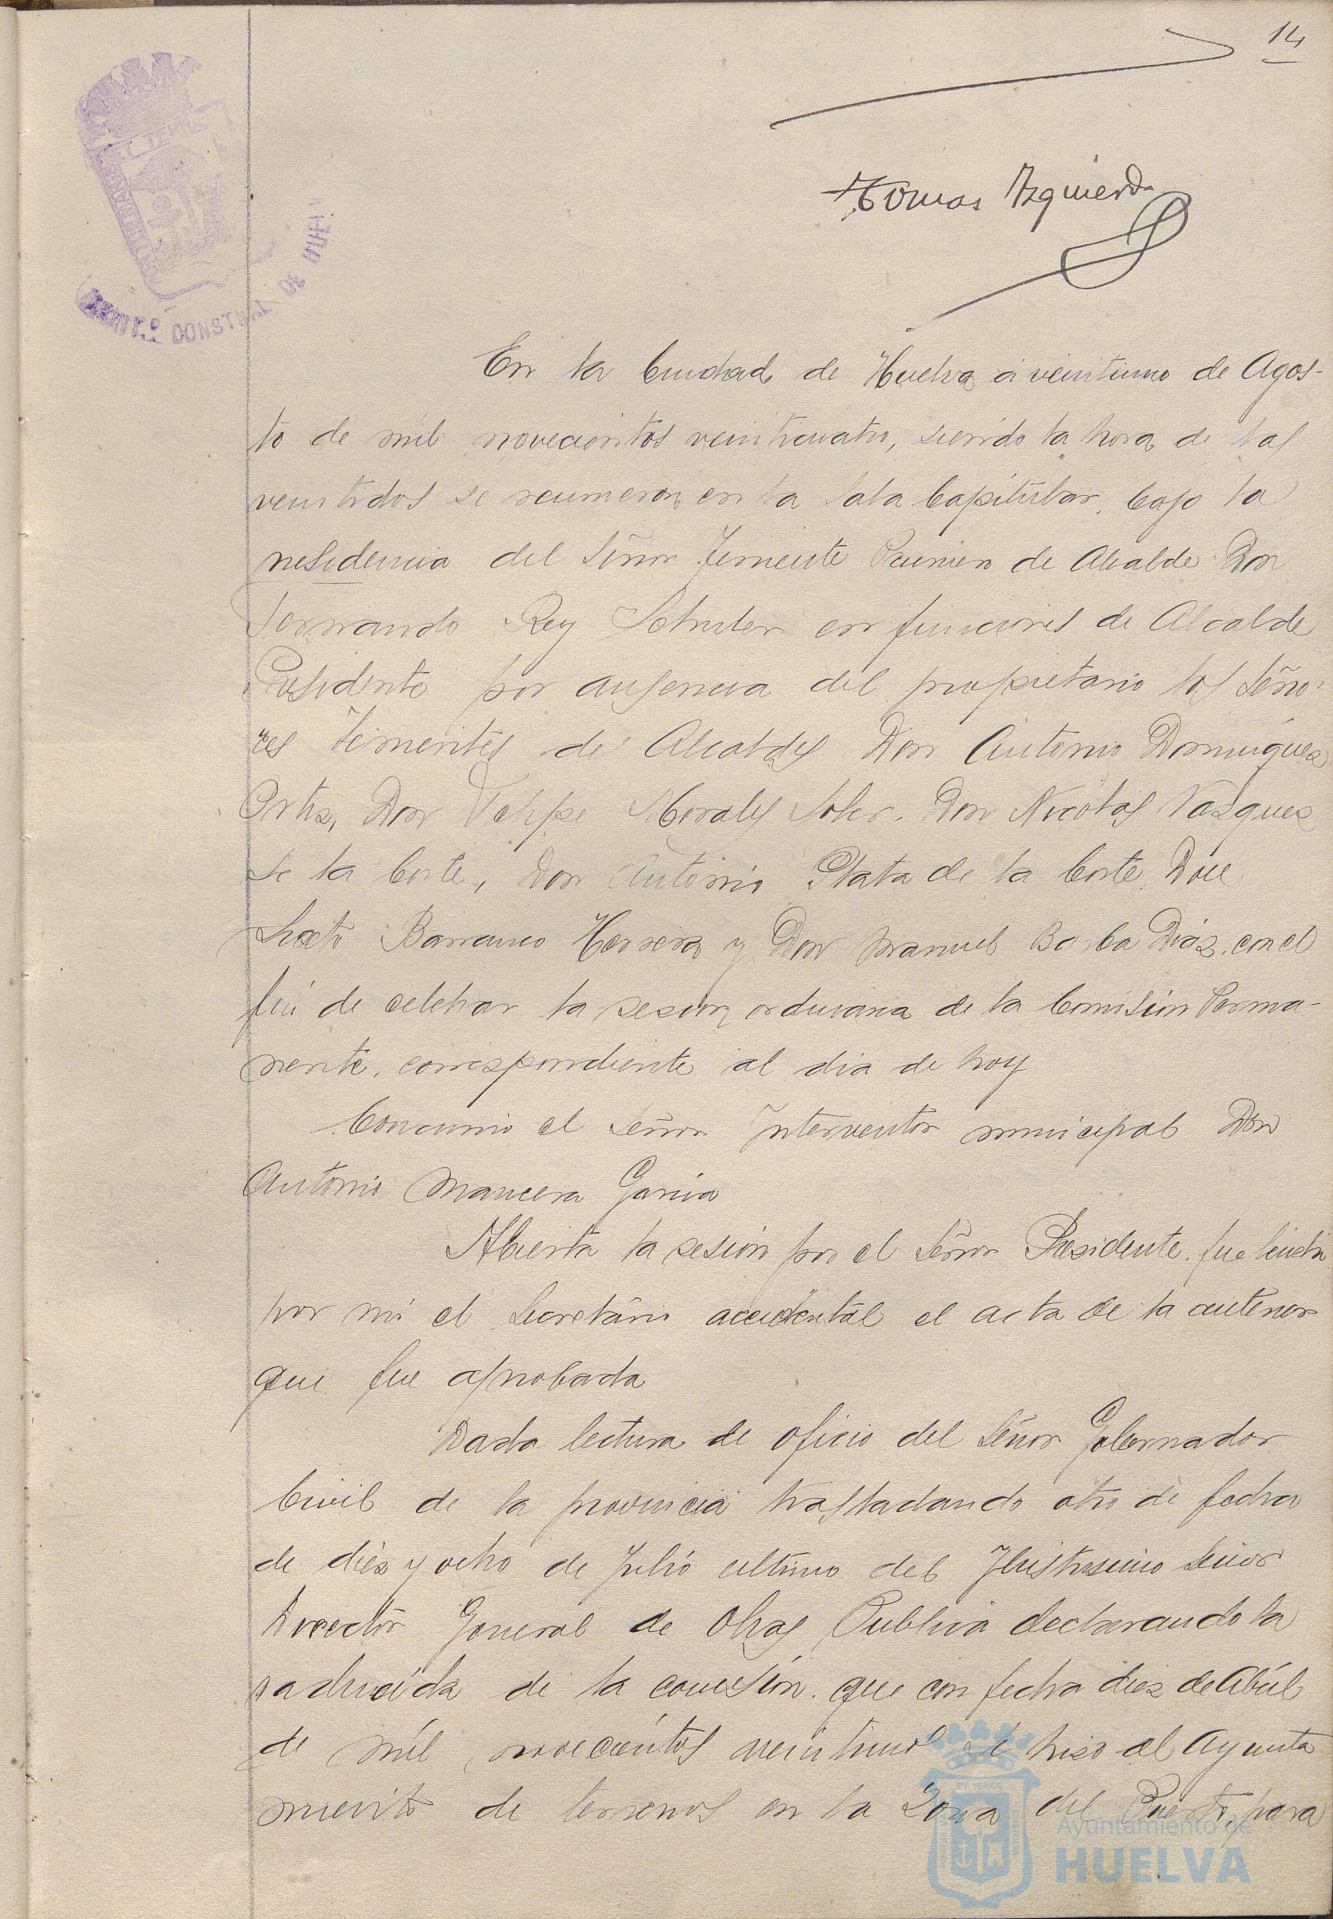 14
Tomas Izquierdo
En la Ciudad de Huelva á veintiuno de Agos-
to de mil novecientos veinticuatro, siendo la hora de las
veintidos se reunieron en la Sala Capitular, bajo la
presidencia del Señor Teniente Primero de Alcalde Don
Fernando Rey en funciones de Alcalde
Presidente por ausencia del propietario los Seño-
res Tenientes de Alcaldes Don Antonio Dominguez
Ortiz, Don Felipe Morales Soler, Don Nicolas Vazquez
de la Corte, Don Antonio Plata de la Corte, Don
Barranco Herrera y Don Manuel Barba Diaz, con el
fin de celebrar la sesion ordinaria de la Comisión Perma-
nente, correspondiente al dia de hoy
Concurrio el Señor Interventor municipal Don
Antonio Mancera Garcia
Abierta la sesion por el Señor Presidente, fue leida
por mi el Secretario accidental el acta de la anterior
que fue aprobada
Dada lectura de oficio del Señor Gobernador
Civil de la provincia trasladando otro de fecha
de diez y ocho de Julio ultimo del Ilustrisimo Señor
Director General de Obras Publica declarando la
caducida de la concesión que con fecha diez de Abril
de mil novecientos veintiuno se hizo al Ayunta
miento de terrenos en la Zona del Puerto, para
AYUNT.º CONSTNAL DE HUELVA
Ayuntamiento de
HUELVA